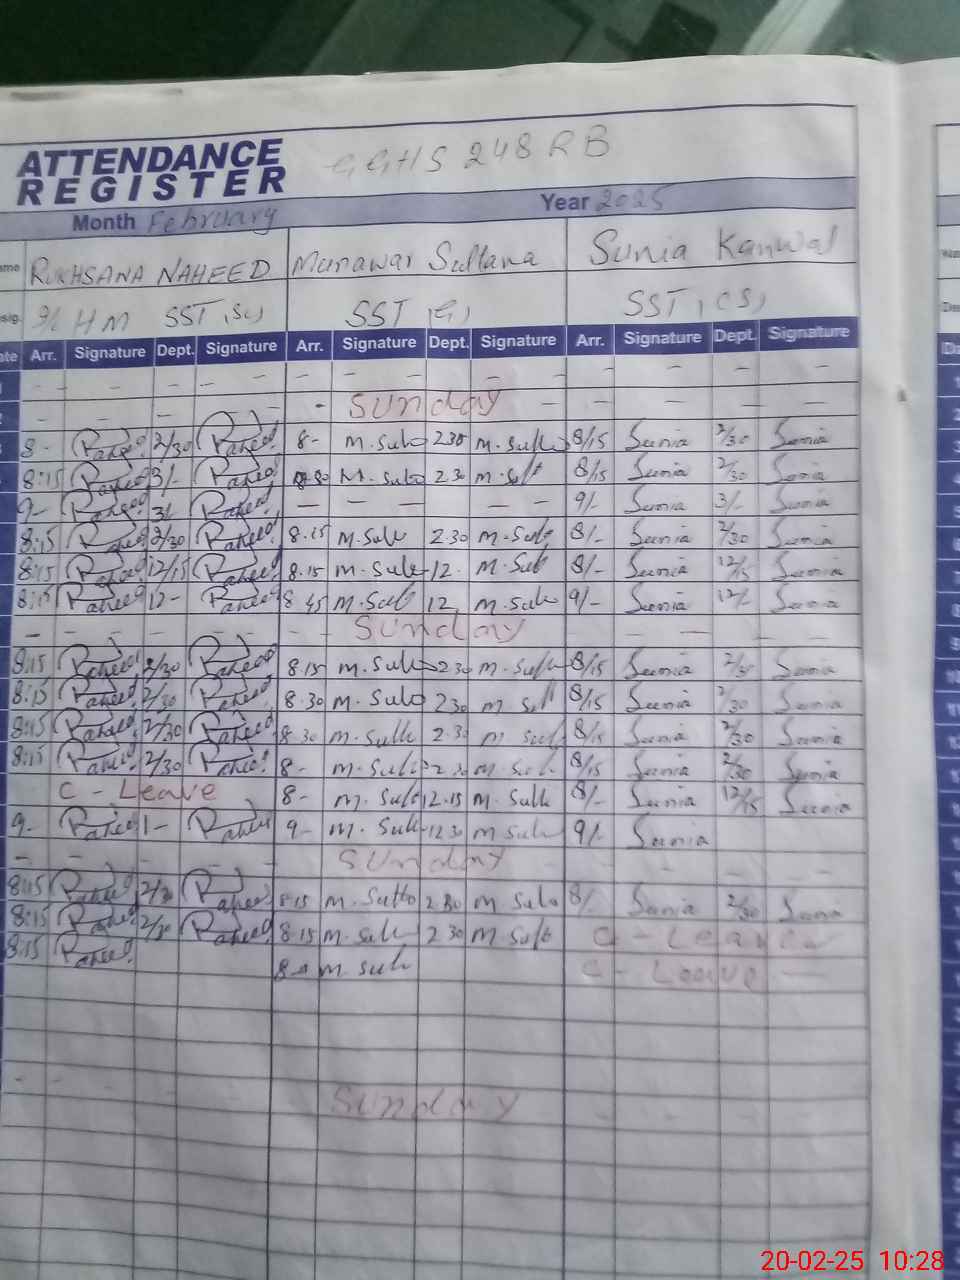 ATTENDANCE
REGISTER
GGHS 248 RB
Month February Year 2025
ame RUKHSANA NAHEED Munawar Sultana Sunia Kanwal
sig. HM SST (Sc) SST (G) SST (CS)
ate Arr. Signature Dept. Signature Arr. Signature Dept. Signature Arr. Signature Dept. Signature
Sunday
8- Raheed 2/30 Raheed 8- M. Sult 2 30 M. Sult 8/15 Sunia 2/30 Sunia
8:15 Raheed 3/- Raheed 8-30 M. Sult 2.30 M. Sult 8/15 Sunia 2/30 Sunia
9- Raheed 3/- Raheed — — — — 9/- Sunia 3/- Sunia
8:15 Raheed 2/30 Raheed 8.15 M. Sult 2.30 M. Sult 8/- Sunia 2/30 Sunia
8:15 Raheed 12/15 Raheed 8.15 M. Sult 12. M. Sult 8/- Sunia 12/15 Sunia
8:15 Raheed 12- Raheed 8 45 M. Sult 12 M. Sult 9/- Sunia 12/- Sunia
Sunday
8:15 Raheed 2/30 Raheed 8.15 M. Sult 2 30 M. Sult 8/15 Sunia 2/30 Sunia
8:15 Raheed 2/30 Raheed 8.30 M. Sult 2 30 M. Sult 8/15 Sunia 2/30 Sunia
8:15 Raheed 2/30 Raheed 8.30 M. Sult 2.30 M. Sult 8/15 Sunia 2/30 Sunia
8:15 Raheed 2/30 Raheed 8- M. Sult 2.30 M. Sult 8/15 Sunia 2/30 Sunia
C - Leave 8- M. Sult 12.15 M. Sult 8/- Sunia 12/15 Sunia
9- Raheed 1- Raheed 9- M. Sult 12 30 M Sult 9/- Sunia
Sunday
8:15 Raheed 2/30 Raheed 8 15 M. Sult 2.30 M. Sult 8/- Sunia 2/30 Sunia
8:15 Raheed 2/30 Raheed 8.15 M. Sult 2 30 M. Sult C - Leave
8:15 Raheed M. Sult C - Leave
Sunday
20-02-25 10:28